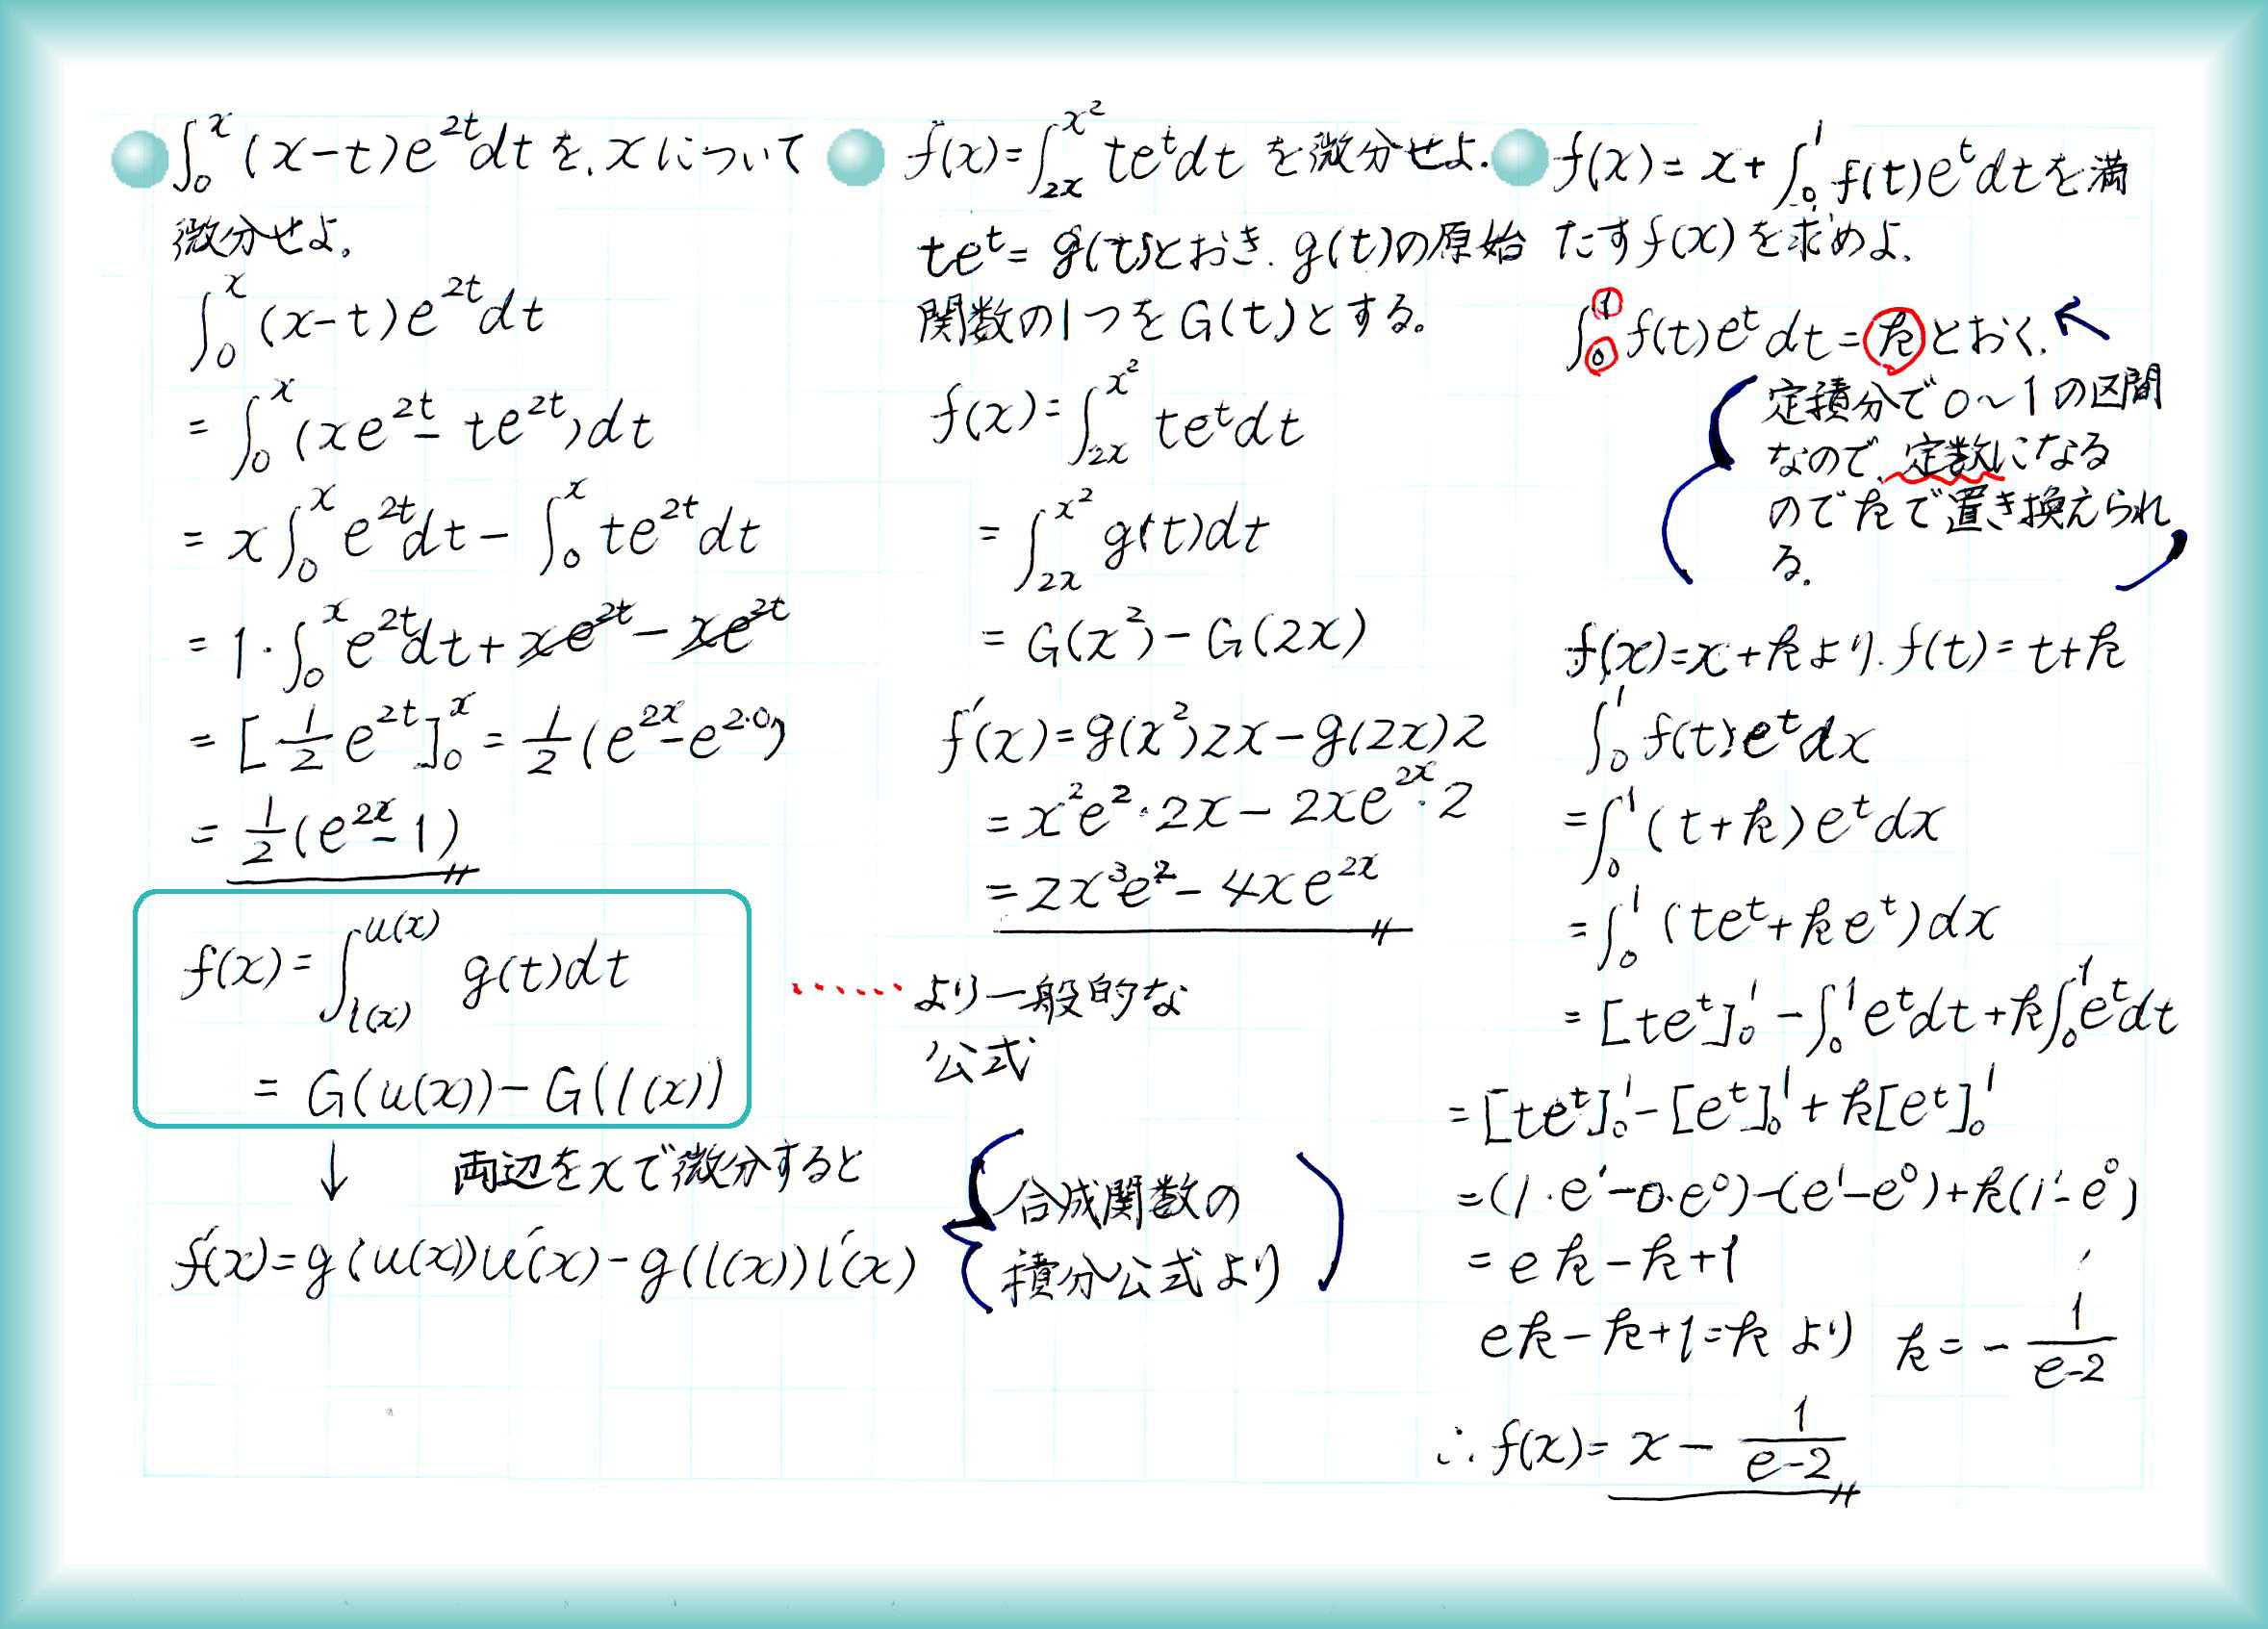 ∫₀ˣ(x-t)e^{2t}dtを、xについて
微分せよ。
∫₀ˣ(x-t)e^{2t}dt
=∫₀ˣ(xe^{2t}-te^{2t})dt
=x∫₀ˣe^{2t}dt-∫₀ˣte^{2t}dt
=1·∫₀ˣe^{2t}dt+xe^{2t}-xe^{2t}
=[1/2 e^{2t}]₀ˣ=1/2(e^{2x}-e^{2·0})
=1/2(e^{2x}-1)
f(x)=∫_{l(x)}^{u(x)} g(t)dt
=G(u(x))-G(l(x))
↓ 両辺をxで微分すると
f'(x)=g(u(x))u'(x)-g(l(x))l'(x)
f(x)=∫_{2x}^{x²}te^tdt を微分せよ.
te^t=g(t)とおき.g(t)の原始
関数の1つをG(t)とする。
f(x)=∫_{2x}^{x²}te^tdt
=∫_{2x}^{x²}g(t)dt
=G(x²)-G(2x)
f'(x)=g(x²)2x-g(2x)2
=x²e²·2x-2xe^{2x}·2
=2x³e²-4xe^{2x}
……より一般的な
公式
合成関数の
積分公式より
f(x)=x+∫₀¹f(t)e^tdtを満
たすf(x)を求めよ.
∫₀¹f(t)e^tdt=kとおく.
定積分で0~1の区間
なので、定数になる
のでkで置き換えられ
る.
f(x)=x+kより.f(t)=t+k
∫₀¹f(t)e^tdx
=∫₀¹(t+k)e^tdx
=∫₀¹(te^t+ke^t)dx
=[te^t]₀¹-∫₀¹e^tdt+k∫₀¹e^tdt
=[te^t]₀¹-[e^t]₀¹+k[e^t]₀¹
=(1·e¹-0·e⁰)-(e¹-e⁰)+k(1¹-e⁰)
=ek-k+1
ek-k+1=kより k=-1/(e-2)
∴f(x)=x-1/(e-2)